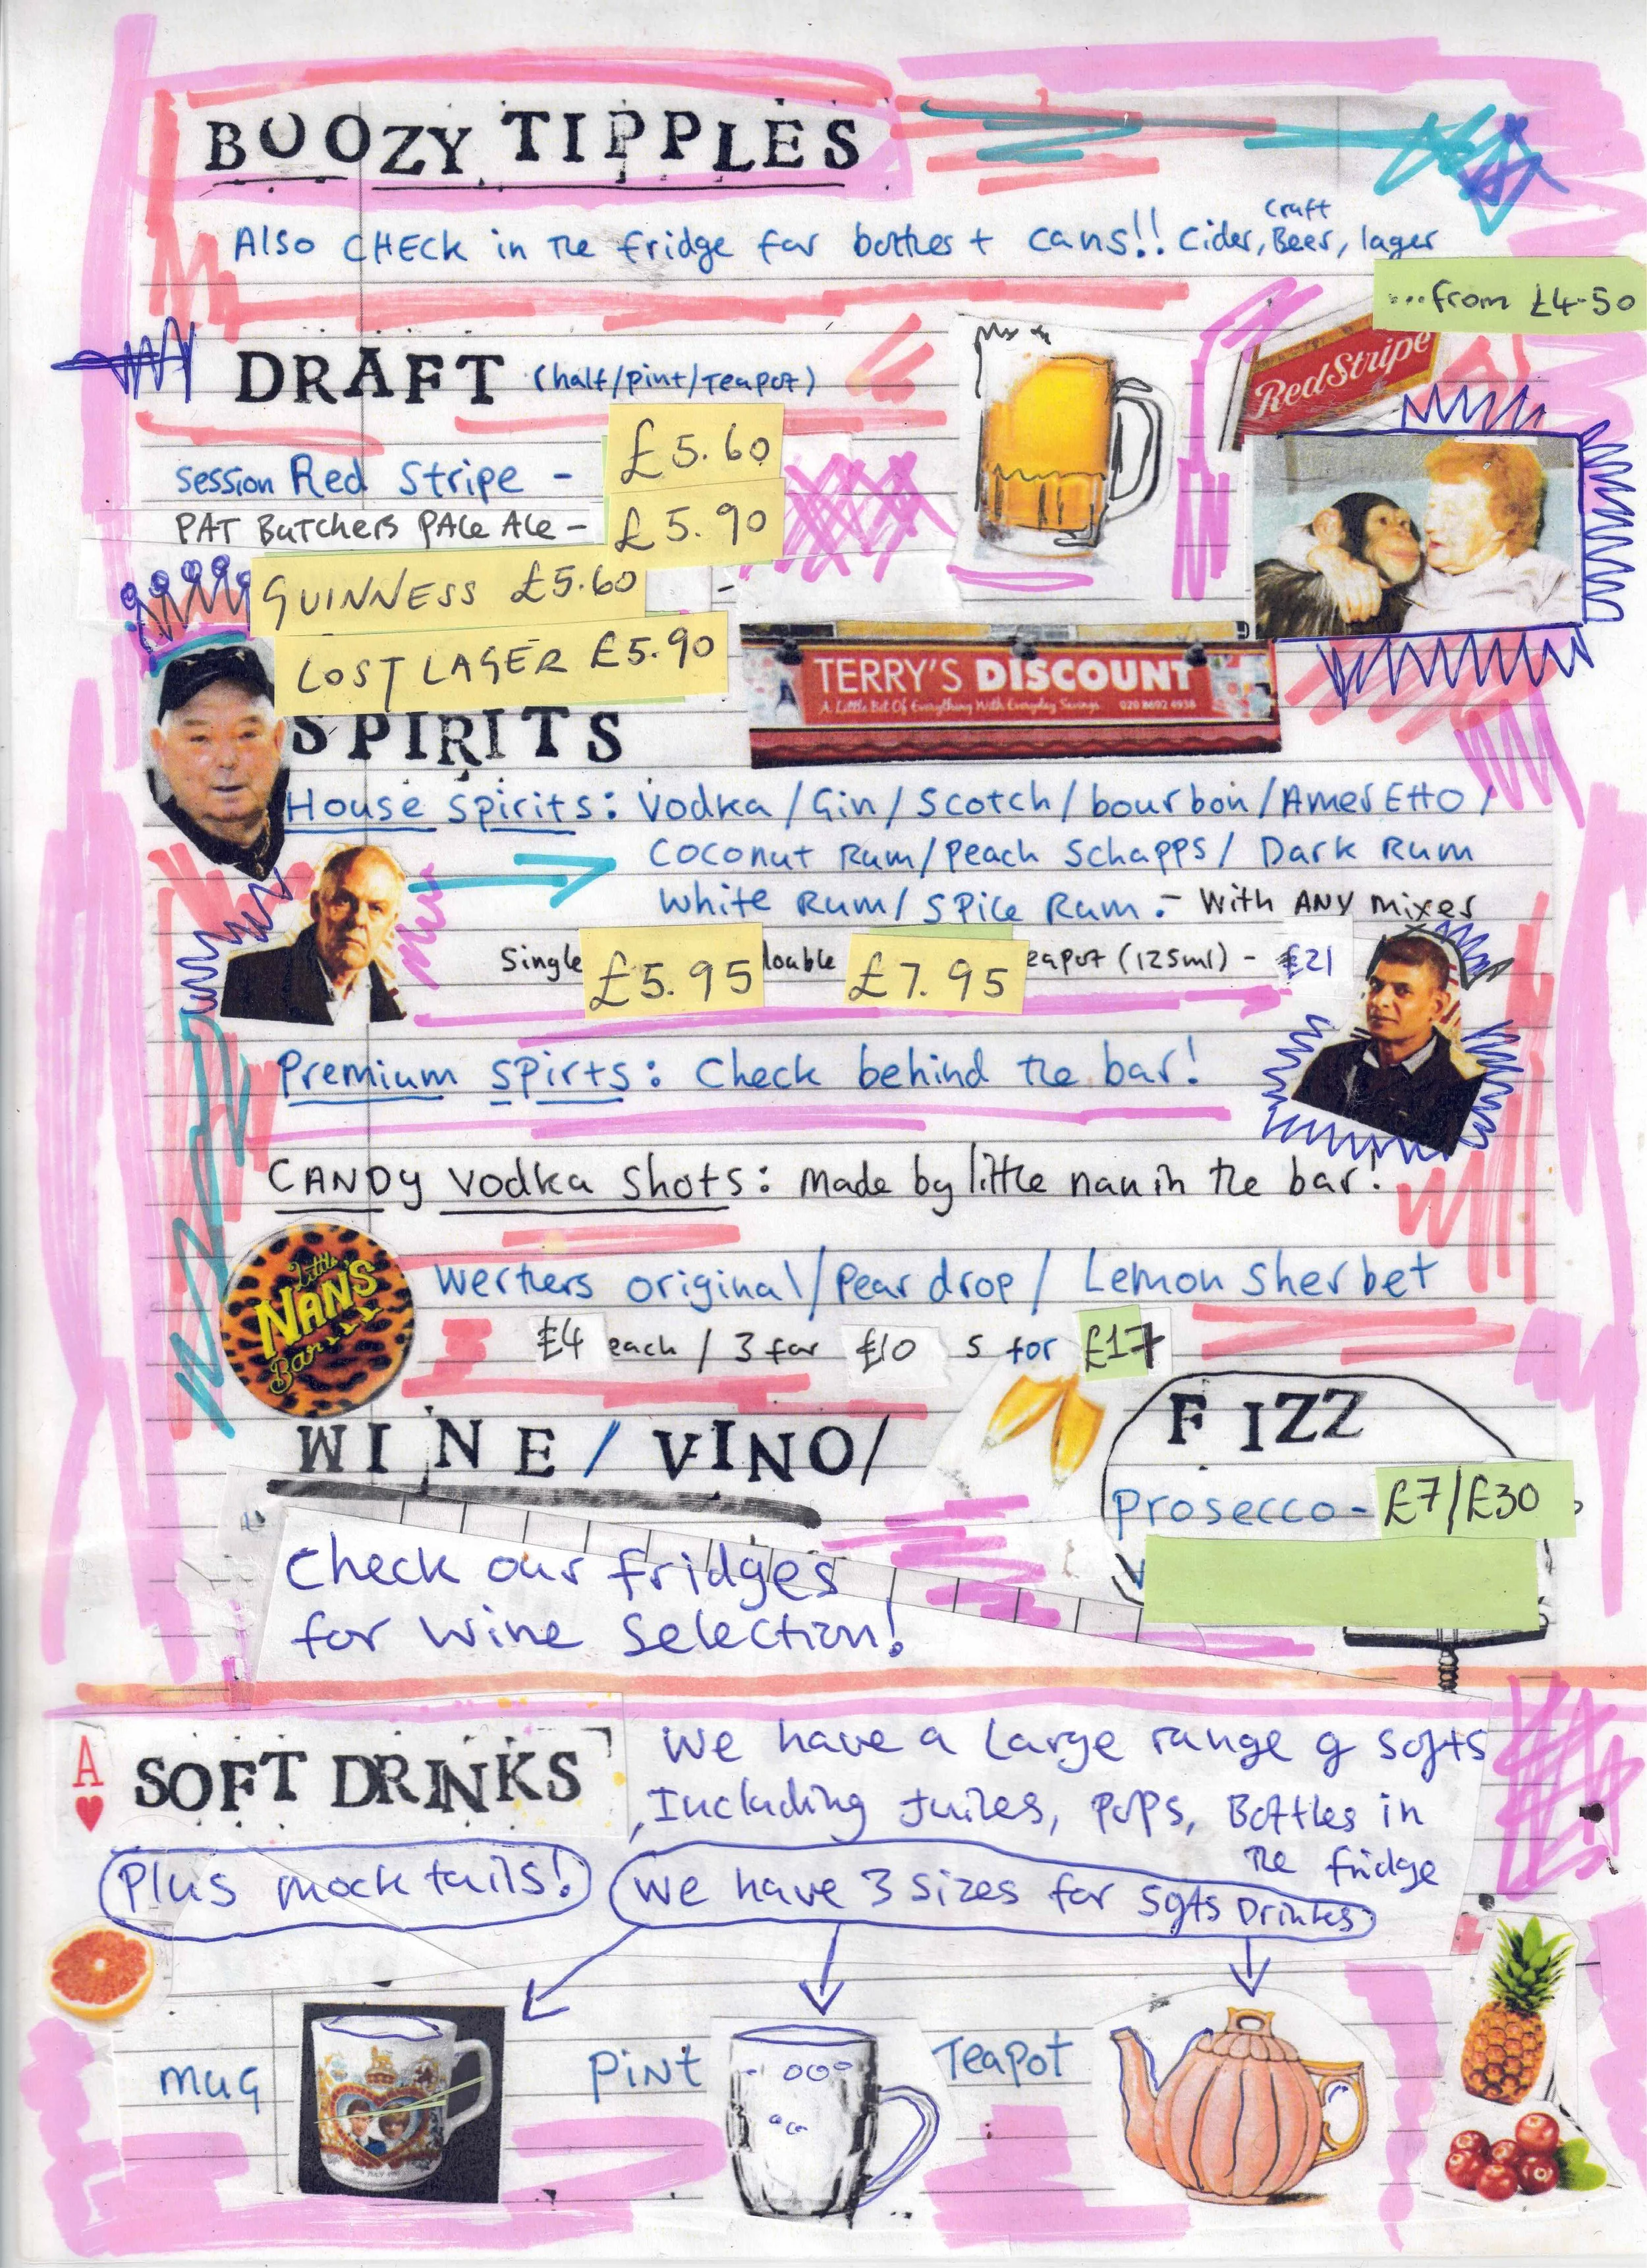 BOOZY TIPPLES
Also CHECK in the fridge for bottles + cans!! Cider, Craft Beer, lager
...from £4.50
DRAFT (half/pint/Teapot)
RedStripe
Session Red Stripe - £5.60
PAT Butchers PALe Ale - £5.90
GUINNESS £5.60
LOST LAGER £5.90
TERRY'S DISCOUNT
A Little Bit Of Everything With Everyday Savings 020 8692 4938
SPIRITS
House Spirits: Vodka / Gin / Scotch / bourbon / AmerEtto /
Coconut Rum / Peach Schapps / Dark Rum
White Rum / Spice Rum - With ANY mixer
Single £5.95 double £7.95 eapot (125ml) - £21
Premium spirts: Check behind the bar!
CANDy Vodka Shots: Made by little nan in the bar!
Little NAN'S Bar
Werthers original / Pear drop / Lemon Sherbet
£4 each / 3 for £10 5 for £17
WINE / VINO /
FIZZ
Prosecco - £7/£30
Check our fridges
for wine Selection!
A SOFT DRINKS
We have a Large range of softs
Including Juices, Pops, Bottles in
the fridge
Plus mocktails!
We have 3 sizes for softs Drinks
Mug
Pint
Teapot